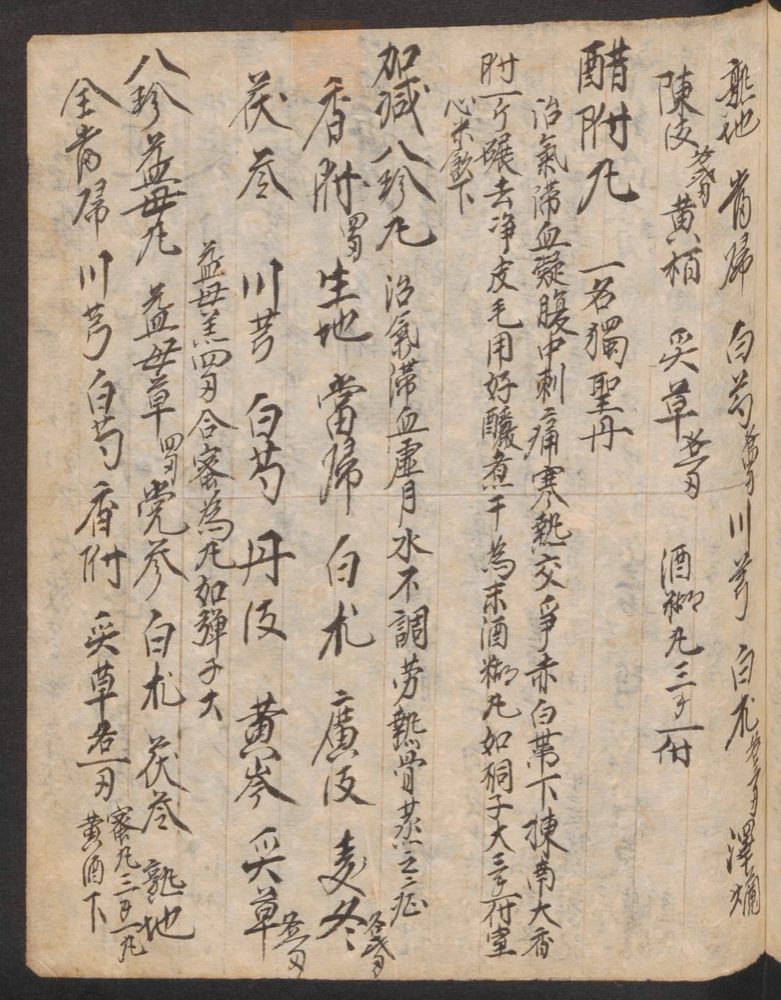 熟地 當歸 白芍 川芎 白朮 澤瀉
陳皮 黃栢 炙草 酒糊丸三錢一付
醋附丸 一名獨聖丹
治氣滯血凝腹中刺痛寒熱交爭赤白蒂下揀南大香
附一斤碾去净皮毛用好釅煮干為末酒糊丸如桐子大三錢一付空
心米飲下
加減八珍丸 治氣滯血虛月水不調劳熱骨蒸之症
香附 生地 當歸 白朮 廣皮 麦冬
茯苓 川芎 白芍 丹皮 黃芩 炙草
益母羔四兩合蜜為丸如彈子大
八珍益母丸 益母草 党参 白朮 茯苓 熟地
全當歸 川芎 白芍 香附 炙草各一兩 蜜丸三錢一丸
黃酒下